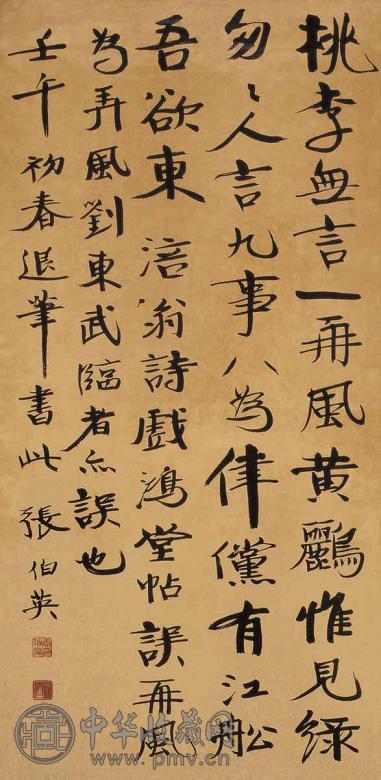 桃李無言一再風黄鸝惟見緑
匆〻人言九事八為律儻有江船
吾欲東 涪翁詩戲鴻堂帖誤再風
為弄風劉東武臨者亦誤也
壬午初春退筆書此 張伯英
中华收藏网
www.pmv.cn